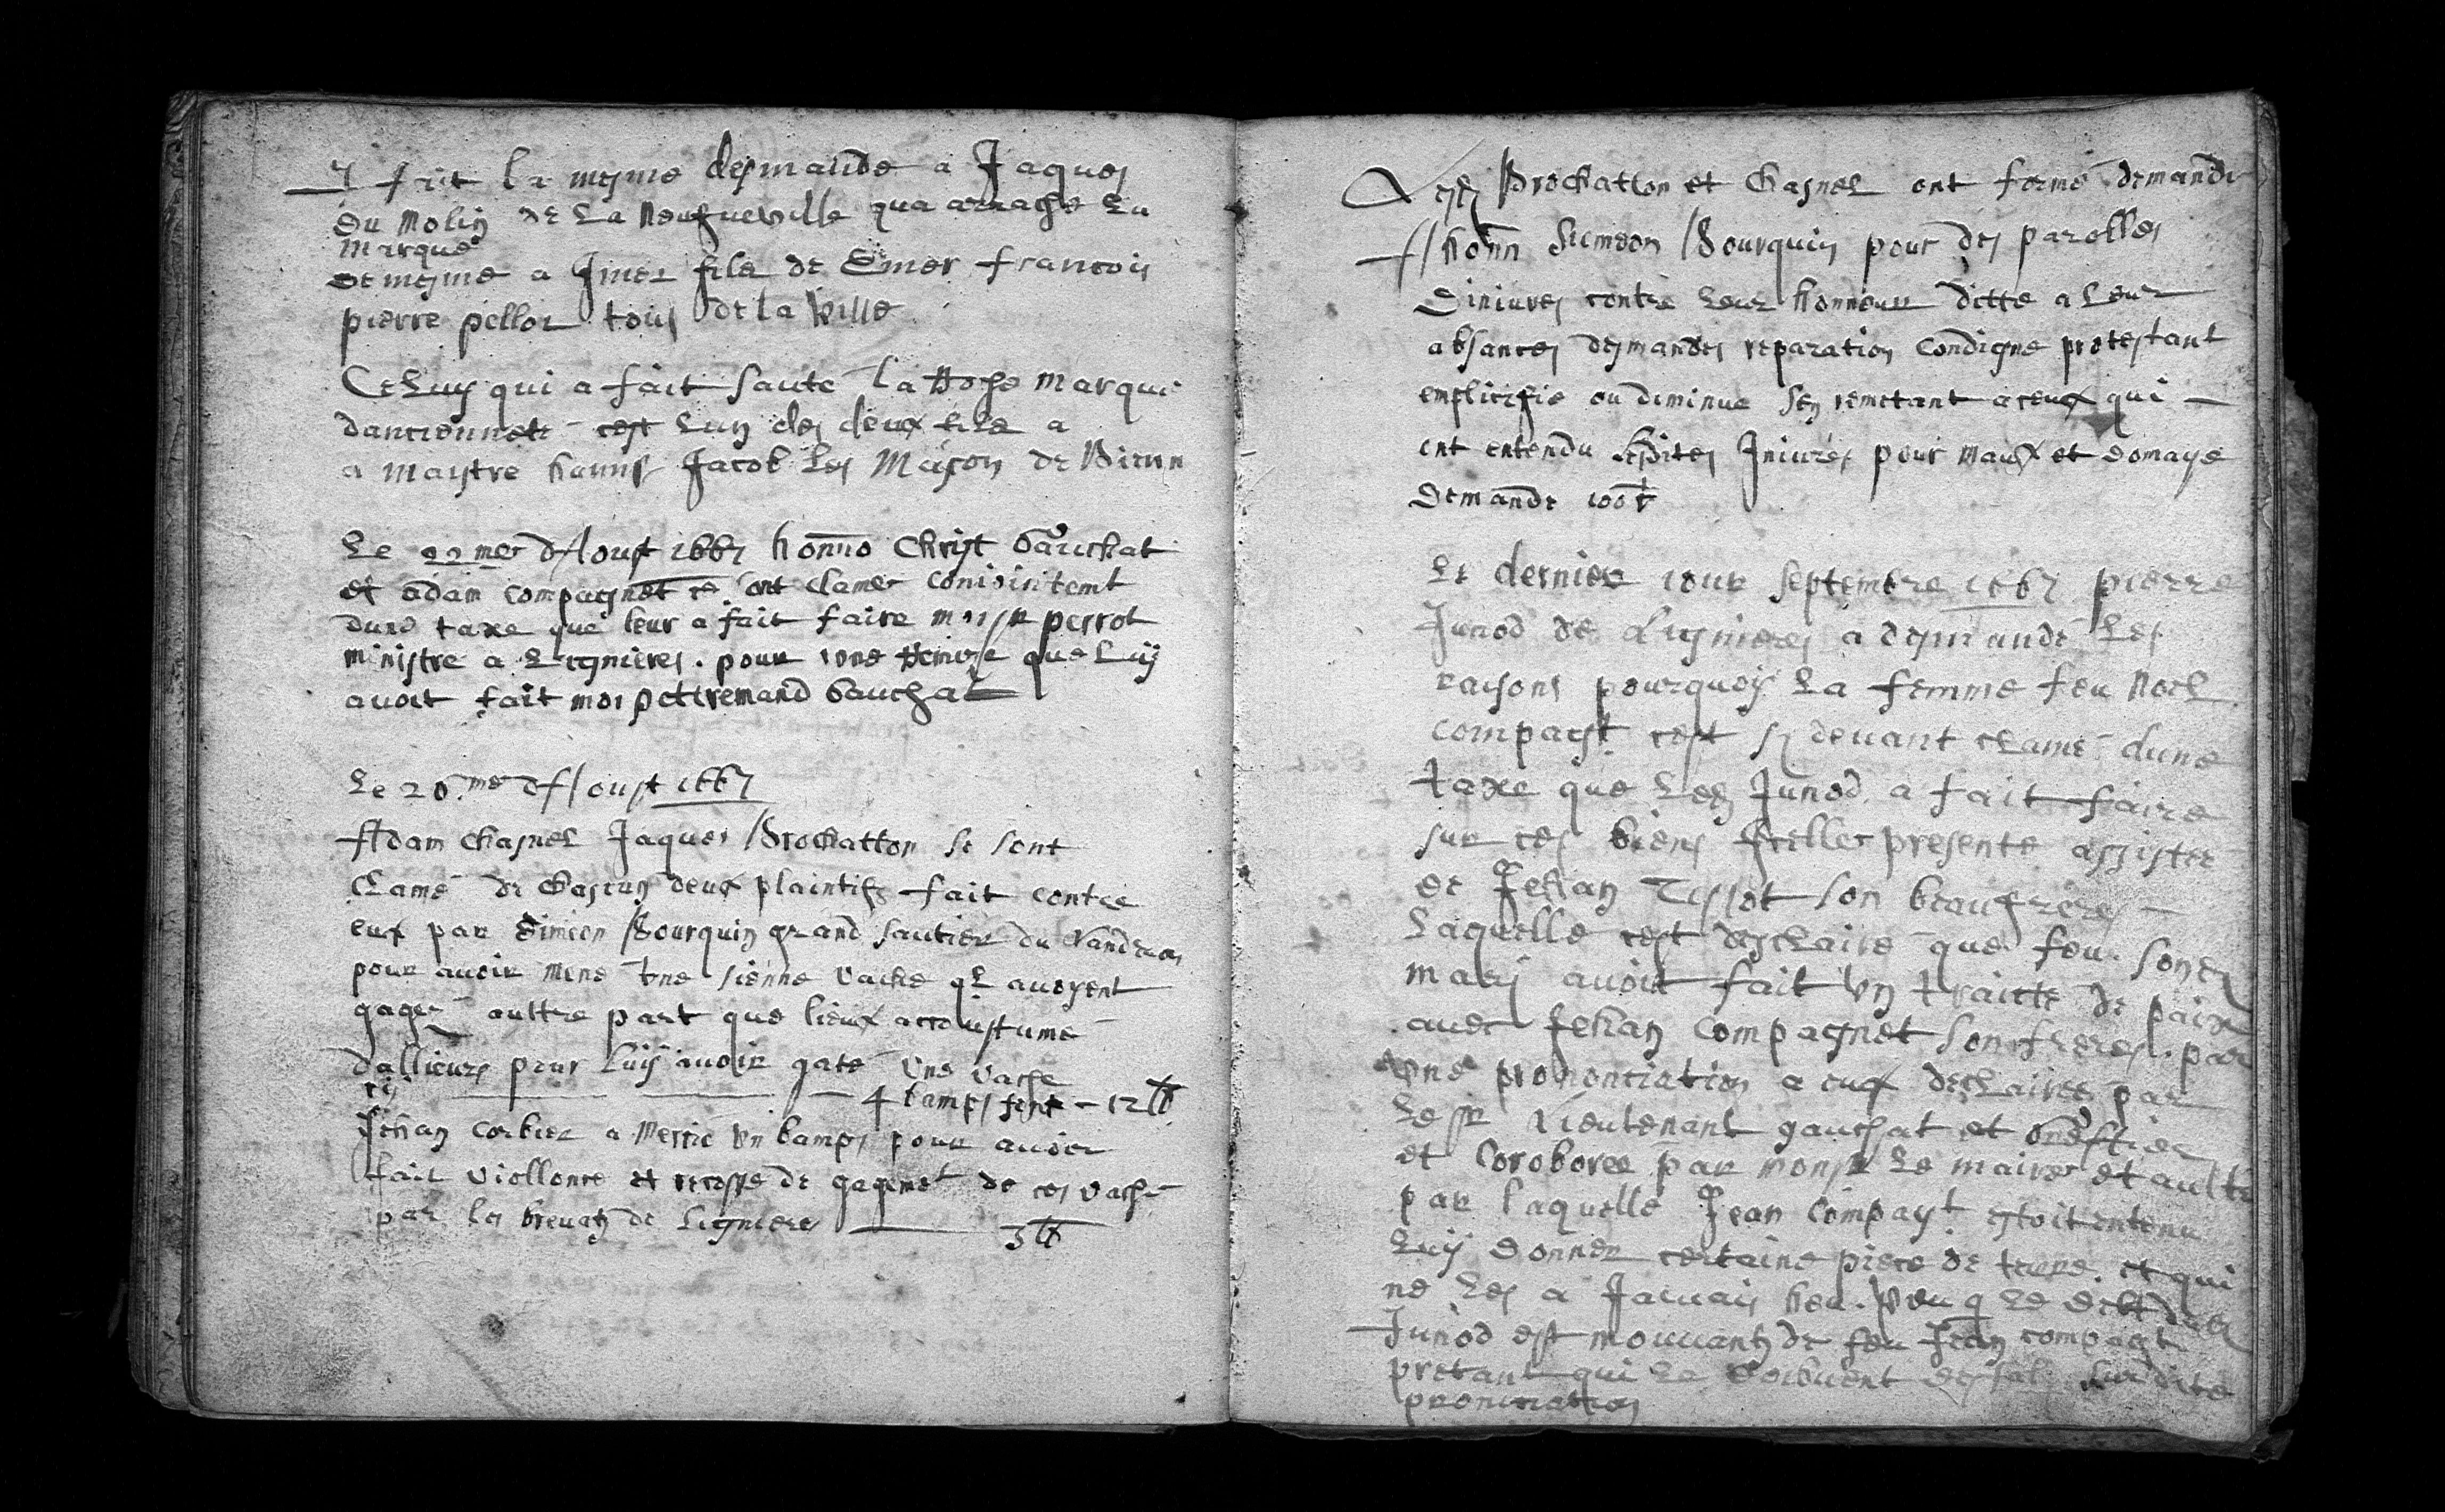 I fait la mesme desmande a Jaques
du Molin de la Neufueville qua arrache La
marque
de mesme a Imer fils de Emer francois
pierre pellot tous de la Ville
Celuy qui a fait saute la Boche marqui
danctionnete cest Lun des deux fils a
a maystre hanns Jacob Les Mason de Bienn
Le 22mes dAoust 1667 honno Christ Bauchat
et adam compagnet ce ont clames
dune taxe que leur a fait faire monsr perrot
ministre a Lignieres . pour une que luy
avoit fait moi pettremand Gauchat
Le 20.me dAoust 1667
Adam Chasnel Jaques Brochatton se sont
clamé de chascun deux plaintifs fait contre
eux par Simeon Bourquin grand sautier du Landeron
pour avoir mene Une sienne vache ql avoyent
gager aultre part que lieux accoustumé
dallieurs pour luy avoir gaté une vache
cy 4 bamps font – 12 ℔
Jehan Corbier a Merité un bamps pour avoir
fait viollence et recosse de gagemt de ces vache
par les brevatz de Ligniere 3 ℔
Lesd Brochatton et Chasnel ont formé demande
A honn Simeon Bourquin pour des parolles
Diniures contre leur honneur ditte a Leur
absances desmandes reparation Condigne protestant
emplififie ou diminue sen remetant a ceux qui –
ont entendu lesdites Iniures pour maux et domage
Demande 100 ℔
Le dernier iour Septembre 1667 pierre
Junod de Lignieres a desmandé Les
raisons pourquoy La femme feu Noel
compagt cest sy devant clamé dune
taxe que Led Junod a fait faire
sur ces biens presente assistée
de Jehan Tissot son beaufreres –
Laquelle cest desclaire que feu sond
mary avoit fait un traicté de paix
avec Jehan Compagnet son freres . par
une prononciation a eux desclairée par
Le Sr Lieutenant gauchat et
et Coroboree par monsr Le maires et aultre
par laquelle Jean Compagt estoit entenu
Luy donner certaine piece de terre . et qui
ne Les a Jamais heu . Veu q Le
Junod est mouvant de feu Jean compagt
pretant qui Le doibvent susdite
prononciation